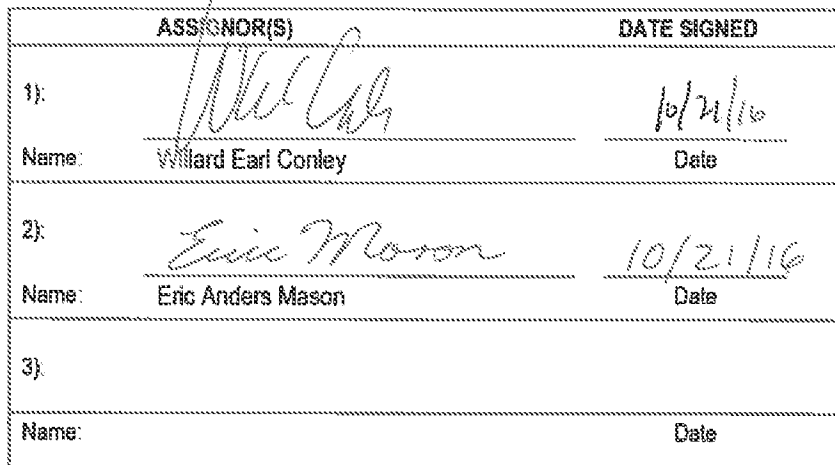 ASSIGNOR(S) DATE SIGNED
1): 10/21/16
Name: Willard Earl Conley Date
2): Eric Mason 10/21/16
Name: Eric Anders Mason Date
3):
Name: Date